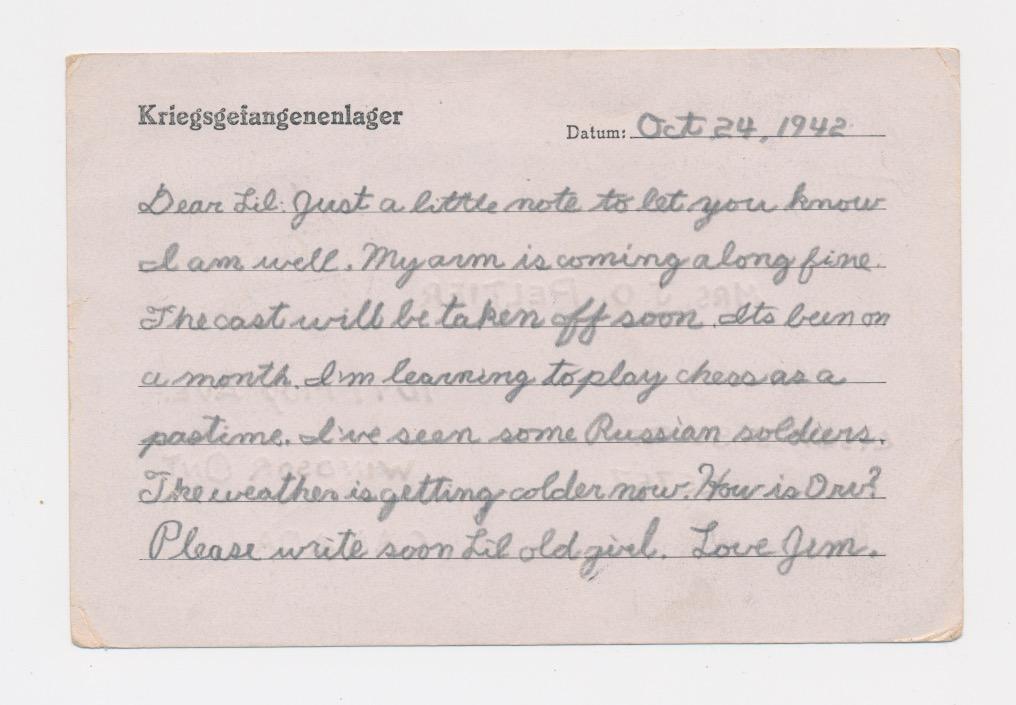 Kriegsgefangenenlager
Datum: Oct 24, 1942
Dear Lil: Just a little note to let you know
I am well. My arm is coming along fine.
The cast will be taken off soon. Its been on
a month. I'm learning to play chess as a
pastime. I've seen some Russian soldiers.
The weather is getting colder now. How is Orv?
Please write soon Lil old girl. Love Jim.